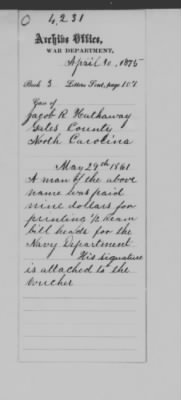 O 4,231
Archive Office,
WAR DEPARTMENT,
April 10, 1875
Book 3 Letters Sent, page 107
Case of
Jacob R. Hathaway
Gates County
North Carolina
May 29th 1861
A man of the above
name was paid
nine dollars for
printing ½ ream
bill heads for the
Navy Department
His signature
is attached to the
voucher